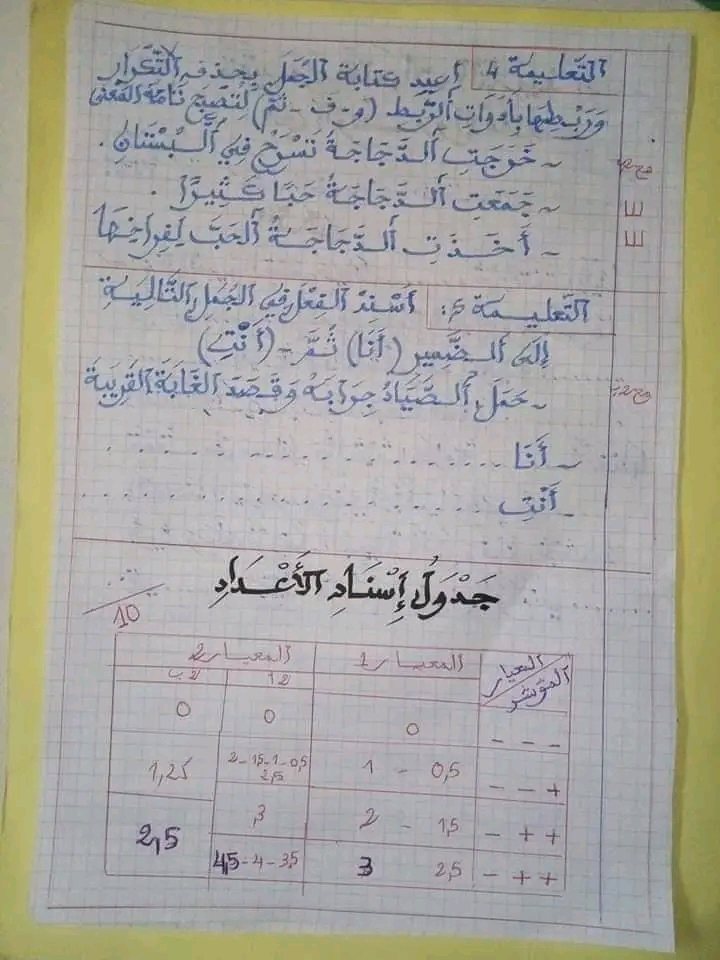 التّعليمة 4 أعيد كتابة الجمل بحذف التّكرار
وربطها بأدوات الرّبط (و - ف - ثمّ) لتصبح تامّة المعنى
~ خَرَجَتِ الدَّجَاجَةُ تَسْرَحُ فِي الْبُسْتَانِ .
~ جَمَعَتِ الدَّجَاجَةُ حَبًّا كَثِيرًا .
~ أَخَذَتِ الدَّجَاجَةُ الْحَبَّ لِفِرَاخِهَا
التّعليمة 5: أسند الفعل في الجمل التّالية
إلى الضّمير (أَنَا) ثُمَّ - (أَنْتِ)
~ حَمَلَ الصَّيَّادُ جِرَابَهُ وَقَصَدَ الغَابَةَ القَرِيبَةَ
~ أَنَا ..................
- أَنْتِ ..................
جَدْوَلُ إِسْنَادِ الأَعْدَادِ
10
المعيار
المؤشر
المعيار 1
المعيار 2
2 أ
2 ب
- - -
0
0
0
- - +
0,5 - 1
0,5-1-1,5-2
2,5
1,25
- + +
1,5 - 2
3
2,5
- + +
2,5
3
3,5-4-4,5